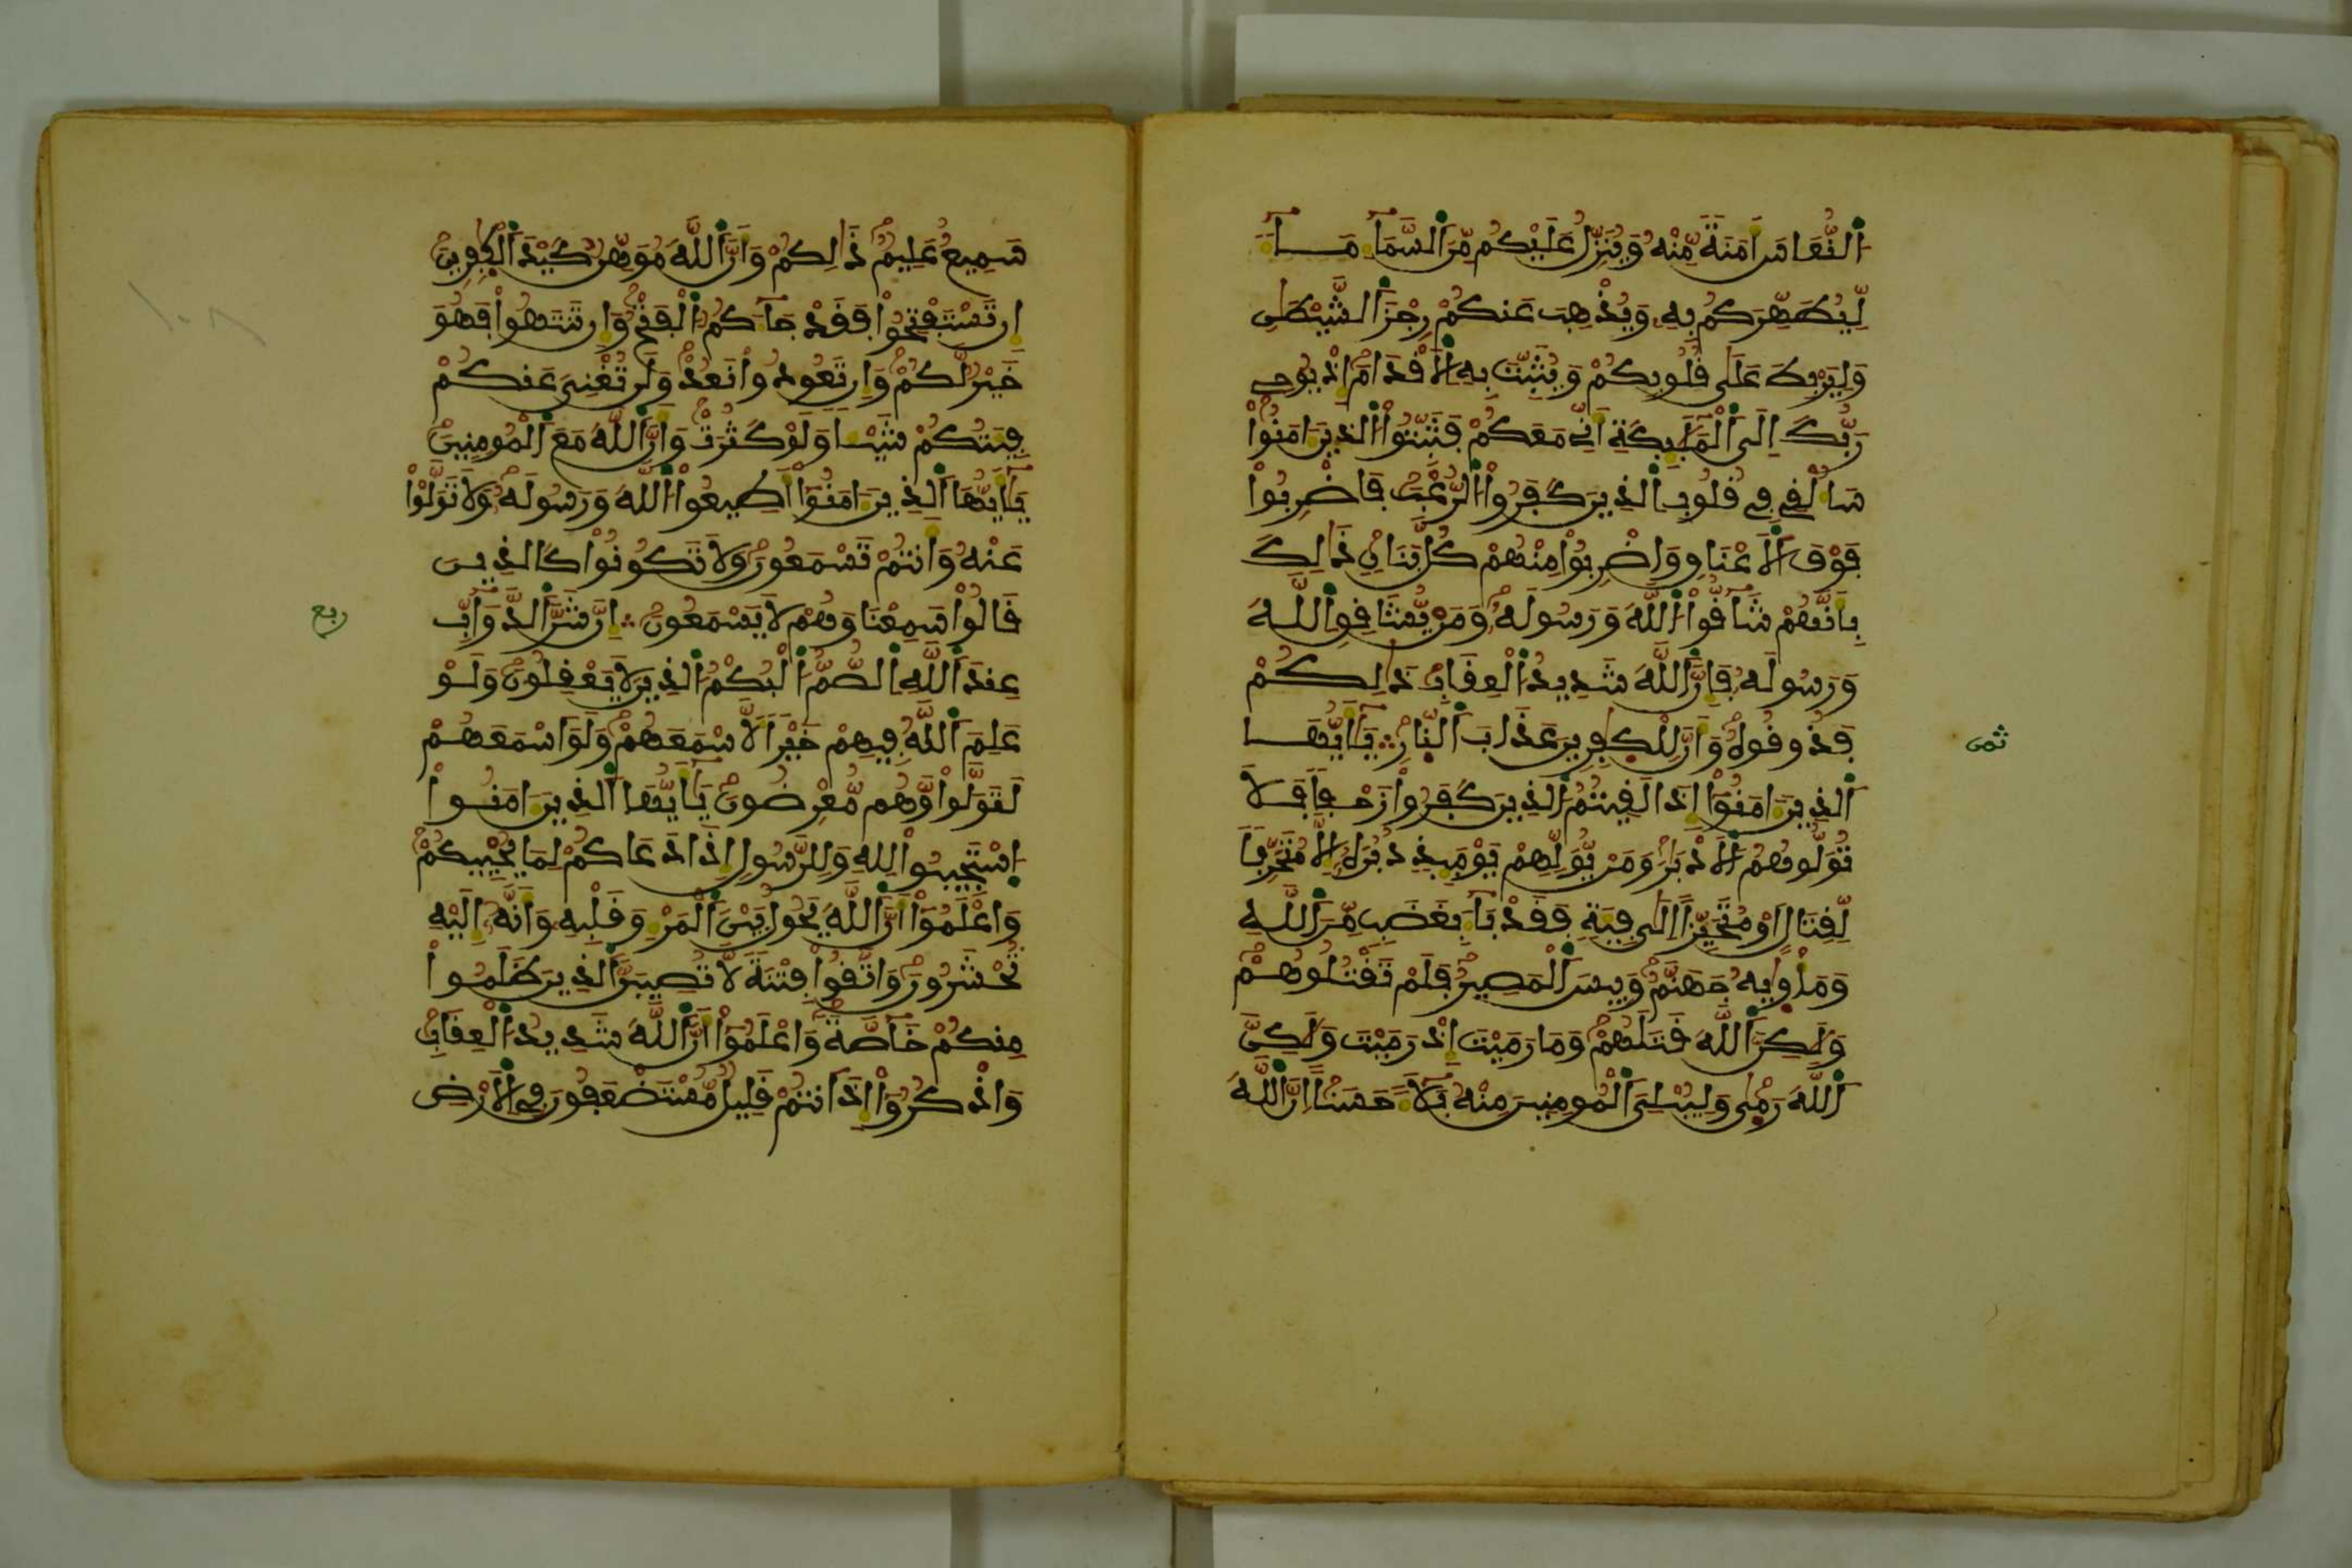 اَ۬لنُّعَاسَ أَمَنَةٗ مِّنْهُ وَيُنَزِّلُ عَلَيْكُم مِّنَ اَ۬لسَّمَآءِ مَآءٗ
لِّيُطَهِّرَكُم بِهِۦ وَيُذْهِبَ عَنكُمْ رِجْزَ اَ۬لشَّيْطَٰنِ
وَلِيَرْبِطَ عَلَىٰ قُلُوبِكُمْ وَيُثَبِّتَ بِهِ اِ۬لَاقْدَامَ إِذْ يُوحِے
رَبُّكَ إِلَى اَ۬لْمَلَٰٓئِكَةِ أَنِّے مَعَكُمْ فَثَبِّتُواْ اُ۬لذِينَ ءَامَنُواْ
سَأُلْقِے فِے قُلُوبِ اِ۬لذِينَ كَفَرُواْ اُ۬لرُّعْبَ فَاضْرِبُواْ
فَوْقَ اَ۬لَاعْنَاقِ وَاضْرِبُواْ مِنْهُمْ كُلَّ بَنَانٖ ذَٰلِكَ
بِأَنَّهُمْ شَآقُّواْ اُ۬للَّهَ وَرَسُولَهُۥ وَمَنْ يُّشَاقِقِ اِ۬للَّهَ
وَرَسُولَهُۥ فَإِنَّ اَ۬للَّهَ شَدِيدُ اُ۬لْعِقَابِ ذَٰلِكُمْ
فَذُوقُوهُ وَأَنَّ لِلْكٰ۪فِرِينَ عَذَابَ اَ۬لنّ۪ارِ ؞ يَٰٓأَيُّهَا
ثمن
اَ۬لذِينَ ءَامَنُوٓاْ إِذَا لَقِيتُمُ اُ۬لذِينَ كَفَرُواْ زَحْفاٗ فَلَا
تُوَلُّوهُمُ اُ۬لَادْبَٰرَ وَمَنْ يُّوَلِّهِمْ يَوْمَئِذٖ دُبُرَهُۥٓ إِلَّا مُتَحَرِّفاٗ
لِّقِتَالٍ اَوْ مُتَحَيِّزاً اِلَىٰ فِئَةٖ فَقَدْ بَآءَ بِغَضَبٖ مِّنَ اَ۬للَّهِ
وَمَأْوٜيٰهُ جَهَنَّمُ وَبِيسَ اَ۬لْمَصِيرُ فَلَمْ تَقْتُلُوهُمْ
وَلَٰكِنَّ اَ۬للَّهَ قَتَلَهُمْ وَمَا رَمَيْتَ إِذْ رَمَيْتَ وَلَٰكِنَّ
اَ۬للَّهَ رَم۪ىٰ وَلِيُبْلِيَ اَ۬لْمُومِنِينَ مِنْهُ بَلَآءً حَسَناً اِنَّ اَ۬للَّهَ
سَمِيعٌ عَلِيمٞ ذَٰلِكُمْ وَأَنَّ اَ۬للَّهَ مُوَهِّنٞ كَيْدَ اَ۬لْكٰ۪فِرِينَ
إِن تَسْتَفْتِحُواْ فَقَدْ جَآءَكُمُ اُ۬لْفَتْحُ وَإِن تَنتَهُواْ فَهُوَ
خَيْرٞ لَّكُمْ وَإِن تَعُودُواْ نَعُدْ وَلَن تُغْنِيَ عَنكُمْ
فِئَتُكُمْ شَيْـٔاٗ وَلَوْ كَثُرَتْ وَأَنَّ اَ۬للَّهَ مَعَ اَ۬لْمُومِنِينَ
يَٰٓأَيُّهَا اَ۬لذِينَ ءَامَنُوٓاْ أَطِيعُواْ اُ۬للَّهَ وَرَسُولَهُۥ وَلَا تَوَلَّوْاْ
عَنْهُ وَأَنتُمْ تَسْمَعُونَ وَلَا تَكُونُواْ كَالذِينَ
قَالُواْ سَمِعْنَا وَهُمْ لَا يَسْمَعُونَ ؞ إِنَّ شَرَّ اَ۬لدَّوَآبِّ
ربع
عِندَ اَ۬للَّهِ اِ۬لصُّمُّ اُ۬لْبُكْمُ اُ۬لذِينَ لَا يَعْقِلُونَ وَلَوْ
عَلِمَ اَ۬للَّهُ فِيهِمْ خَيْراٗ لَّأَسْمَعَهُمْ وَلَوَ اَسْمَعَهُمْ
لَتَوَلَّواْ وَّهُم مُّعْرِضُونَ يَٰٓأَيُّهَا اَ۬لذِينَ ءَامَنُواْ
اُ۪سْتَجِيبُواْ لِلهِ وَلِلرَّسُولِ إِذَا دَعَاكُمْ لِمَا يُحْيِيكُمْ
وَاعْلَمُوٓاْ أَنَّ اَ۬للَّهَ يَحُولُ بَيْنَ اَ۬لْمَرْءِ وَقَلْبِهِۦ وَأَنَّهُۥٓ إِلَيْهِ
تُحْشَرُونَ وَاتَّقُواْ فِتْنَةٗ لَّا تُصِيبَنَّ اَ۬لذِينَ ظَلَمُواْ
مِنكُمْ خَآصَّةٗ وَاعْلَمُوٓاْ أَنَّ اَ۬للَّهَ شَدِيدُ اُ۬لْعِقَابِ
وَاذْكُرُوٓاْ إِذَ اَنتُمْ قَلِيلٞ مُّسْتَضْعَفُونَ فِے اِ۬لَارْضِ